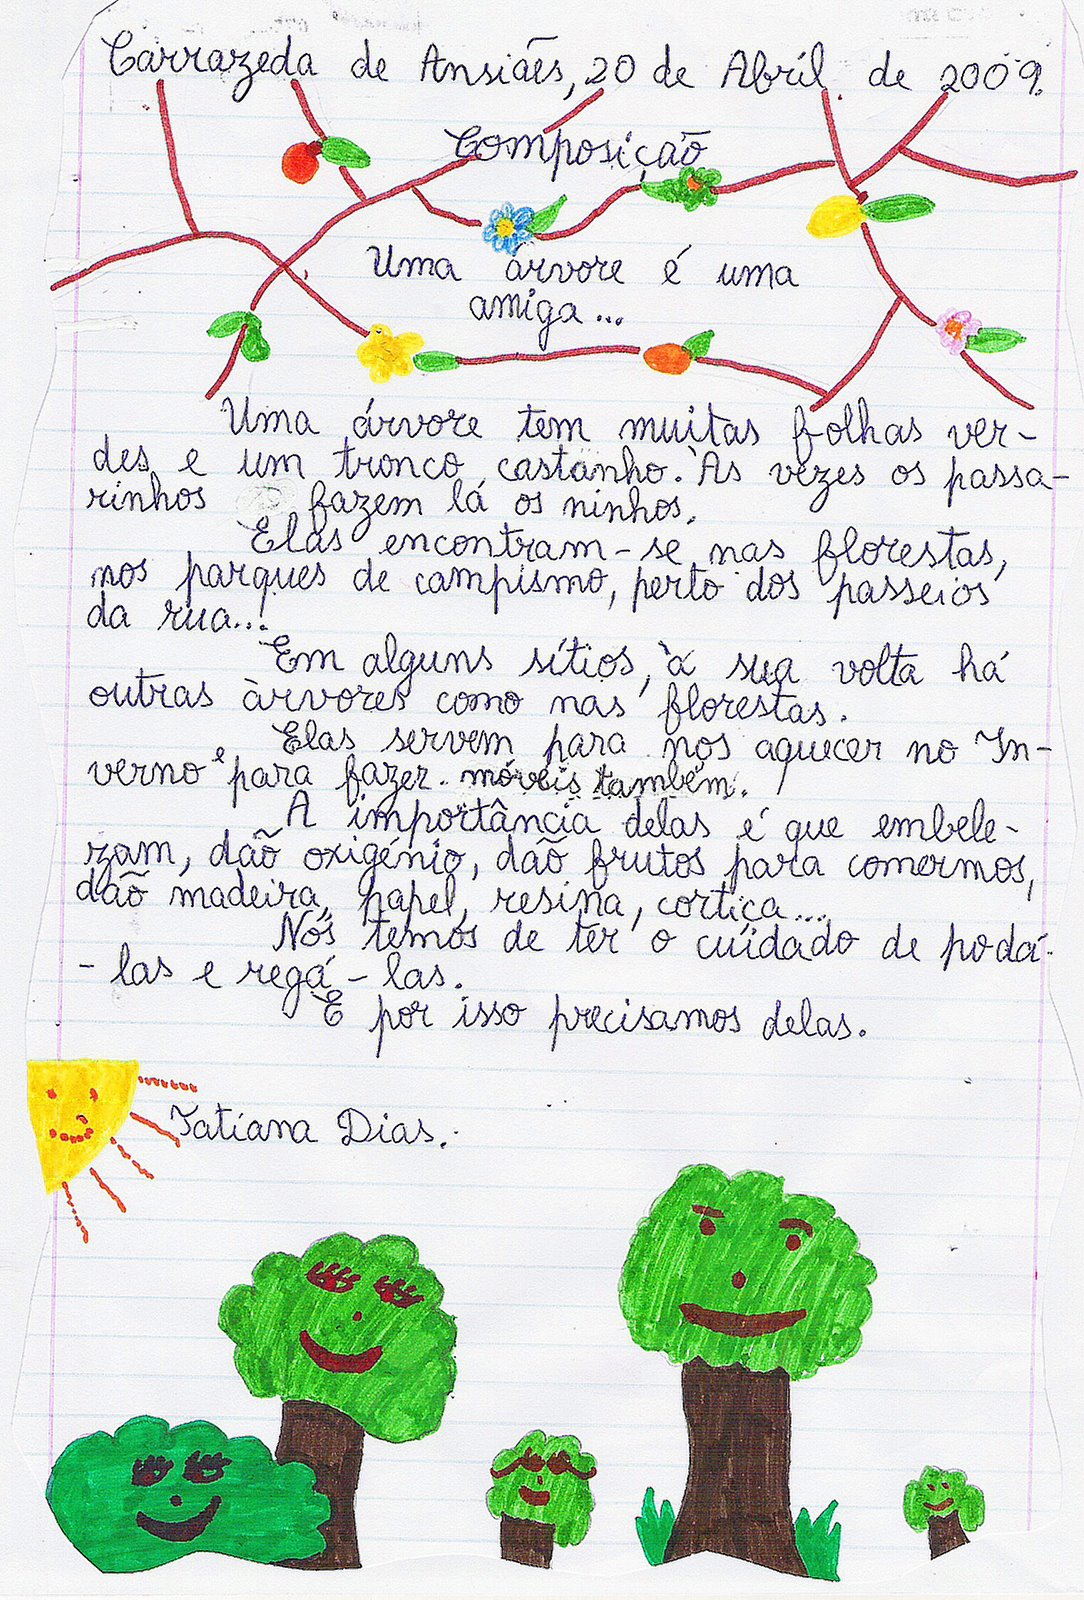 Carrazeda de Ansiães, 20 de Abril de 2009.
Composição
Uma árvore é uma
amiga...
Uma árvore tem muitas folhas ver-
des e um tronco castanho. Às vezes os passa-
rinhos fazem lá os ninhos.
Elas encontram-se nas florestas,
nos parques de campismo, perto dos passeios
da rua...
Em alguns sítios, à sua volta há
outras àrvores como nas florestas.
Elas servem para nos aquecer no In-
verno e para fazer móveis também.
A importância delas é que embele-
zam, daõ oxigénio, daõ frutos para comermos,
daõ madeira, papel, resina, cortiça...
Nós temos de ter o cuidado de podá-
-las e regá-las.
E por isso precisamos delas.
Tatiana Dias.